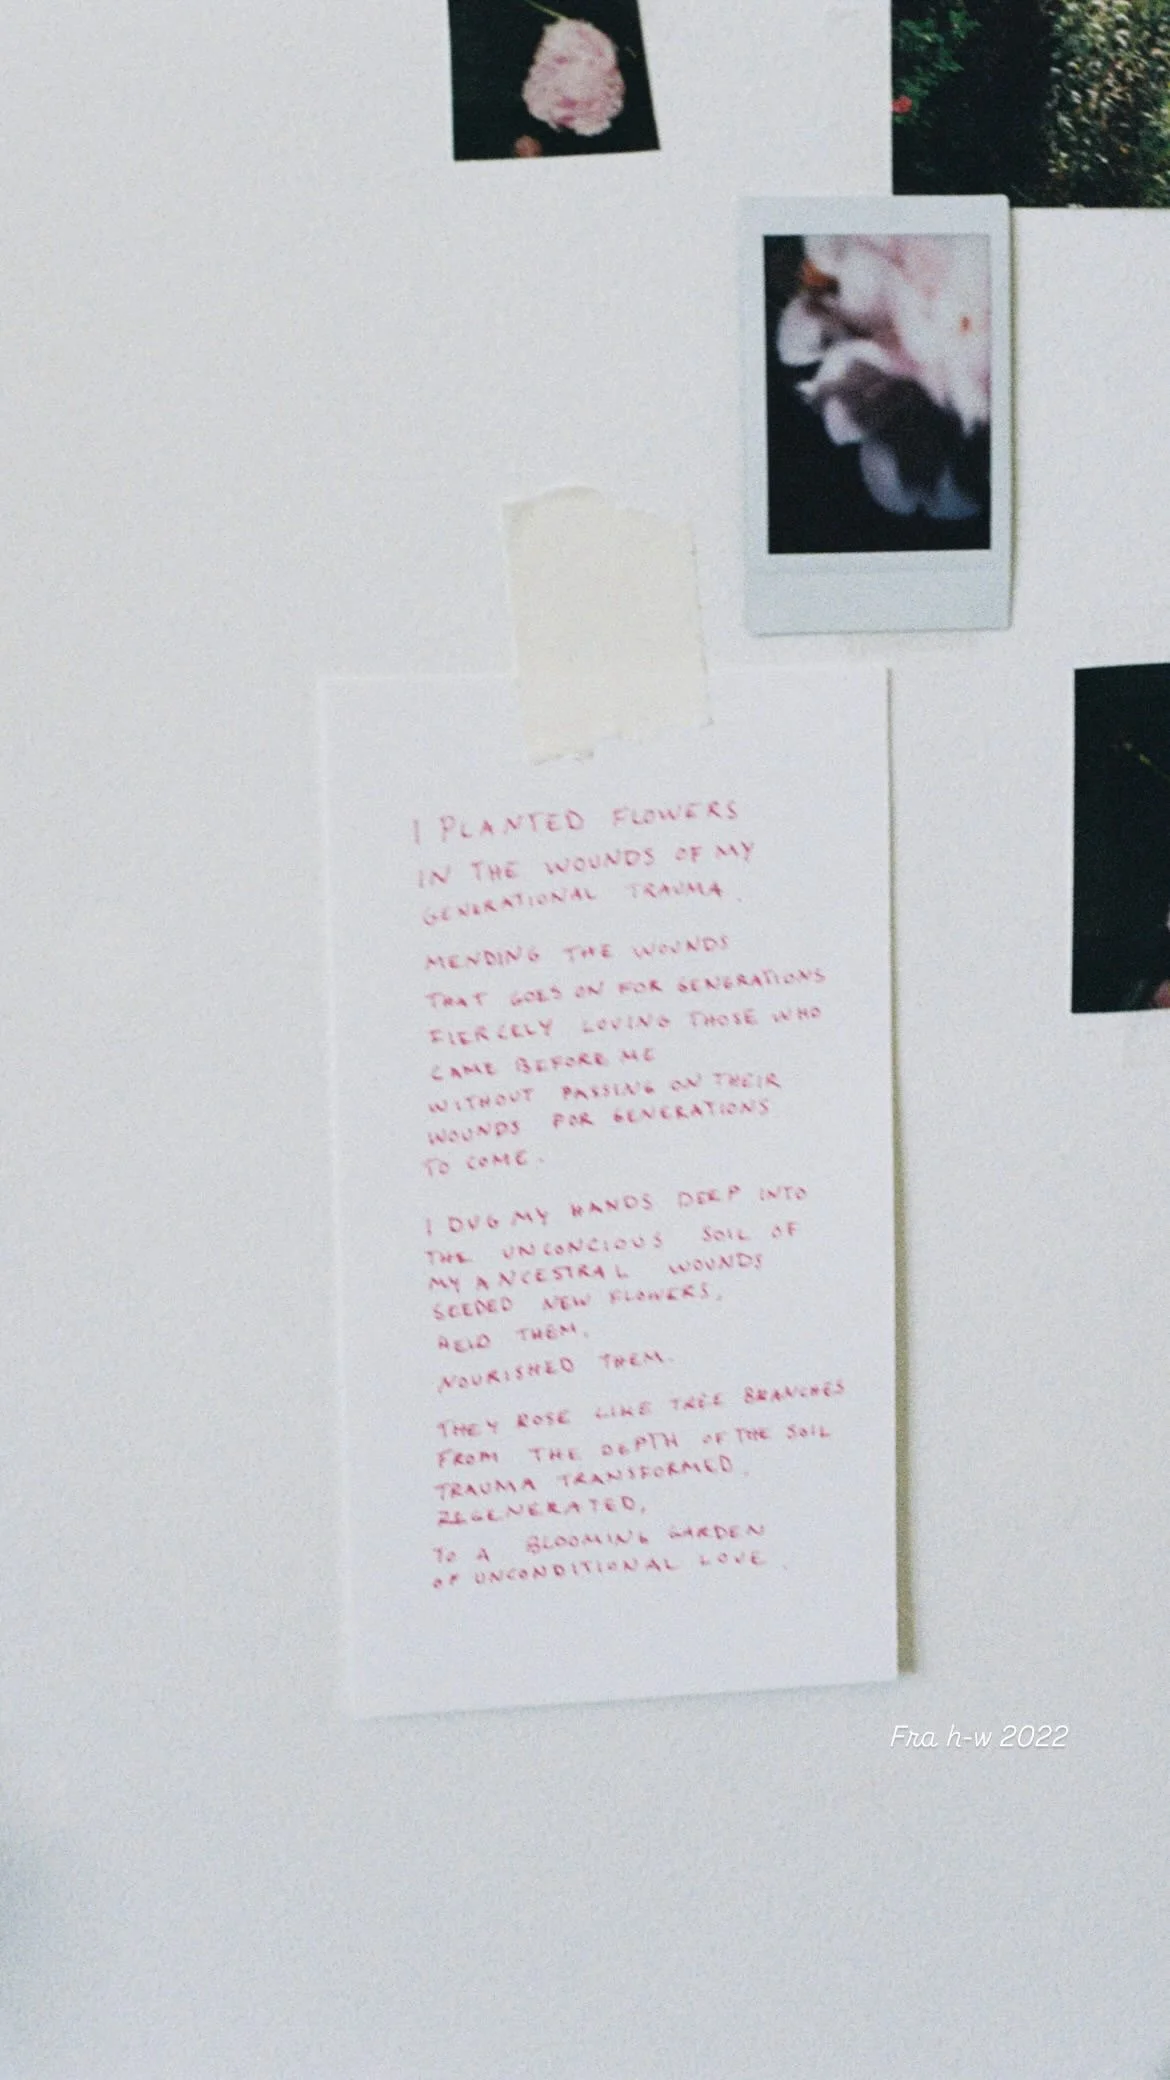 I PLANTED FLOWERS
IN THE WOUNDS OF MY
GENERATIONAL TRAUMA.
MENDING THE WOUNDS
THAT GOES ON FOR GENERATIONS
FIERCELY LOVING THOSE WHO
CAME BEFORE ME
WITHOUT PASSING ON THEIR
WOUNDS FOR GENERATIONS
TO COME.
I DUG MY HANDS DEEP INTO
THE UNCONCIOUS SOIL OF
MY ANCESTRAL WOUNDS
SEEDED NEW FLOWERS,
HELD THEM,
NOURISHED THEM.
THEY ROSE LIKE TREE BRANCHES
FROM THE DEPTH OF THE SOIL
TRAUMA TRANSFORMED,
REGENERATED,
TO A BLOOMING GARDEN
OF UNCONDITIONAL LOVE.
Fra h-w 2022